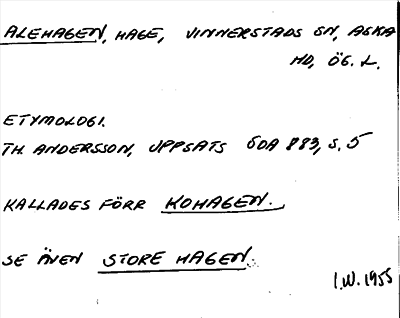 ALEHAGEN, HAGE, VINNERSTADS SN, ASKA
HD, ÖG. L.
ETYMOLOGI.
TH. ANDERSSON, UPPSATS ÖDA 883, S. 5
KALLADES FÖRR KOHAGEN.
SE ÄVEN STORE HAGEN.
I.W. 1955